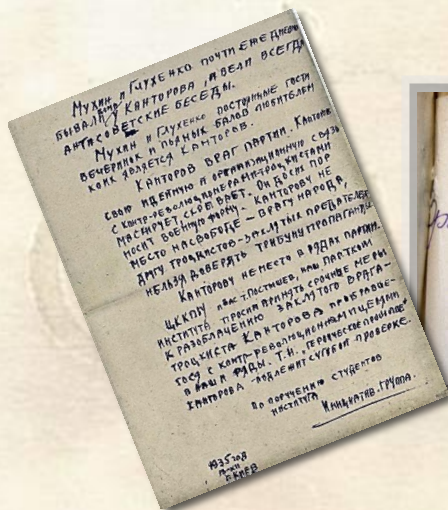 Мухин и Глухенко почти ежедневно
бывали дома у Канторова, и вели всегда
антисоветские беседы.
Мухин и Глухенко постоянные гости
вечеринок и полных балов любителем
коих является Канторов.
Канторов враг партии. Канторов
свою идейную и организационную связь
с контр-революционерами-троцкистами
маскирует, скрывает. Он до сих пор
носит военную форму. Канторову не
место на свободе – врагу народа,
другу троцкистов-заклятых предателей
нельзя доверять трибуну пропагандиста
Канторову не место в рядах партии.
ЦККПУ вас т. Постышев, наш партком
института просим принять срочные меры
к разоблачению заклятого врага –
троцкиста Канторова
с контр-революционными целями
в наши ряды. Т.Н. героическое прошлое
Канторова подлежит сугубой проверке.
По поручению студентов
института
Инициатив. группа.
1935 год
г. Киев